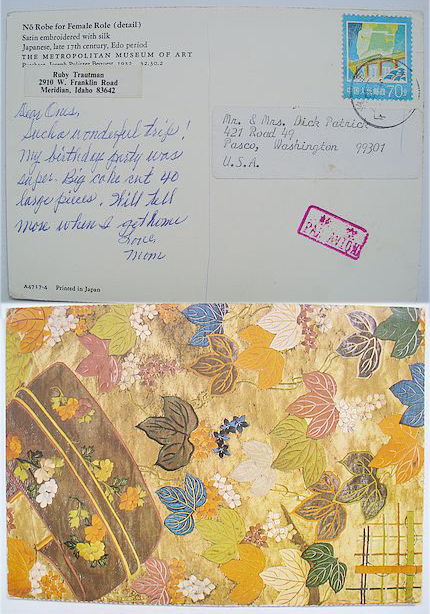 Nō Robe for Female Role (detail)
Satin embroidered with silk
Japanese, late 17th century, Edo period
THE METROPOLITAN MUSEUM OF ART
Ruby Trautman
2910 W. Franklin Road
Meridian, Idaho 83642
Dear Ones,
Such a wonderful trip!
My birthday party was
super. Big cake cut 40
large pieces. Will tell
more when I get home
Love,
Mom
A4717-4 Printed in Japan
中国人民邮政 70分
Mr. & Mrs. Dick Patrick
421 Road 49
Pasco, Washington 99301
U.S.A.
PAR AVION